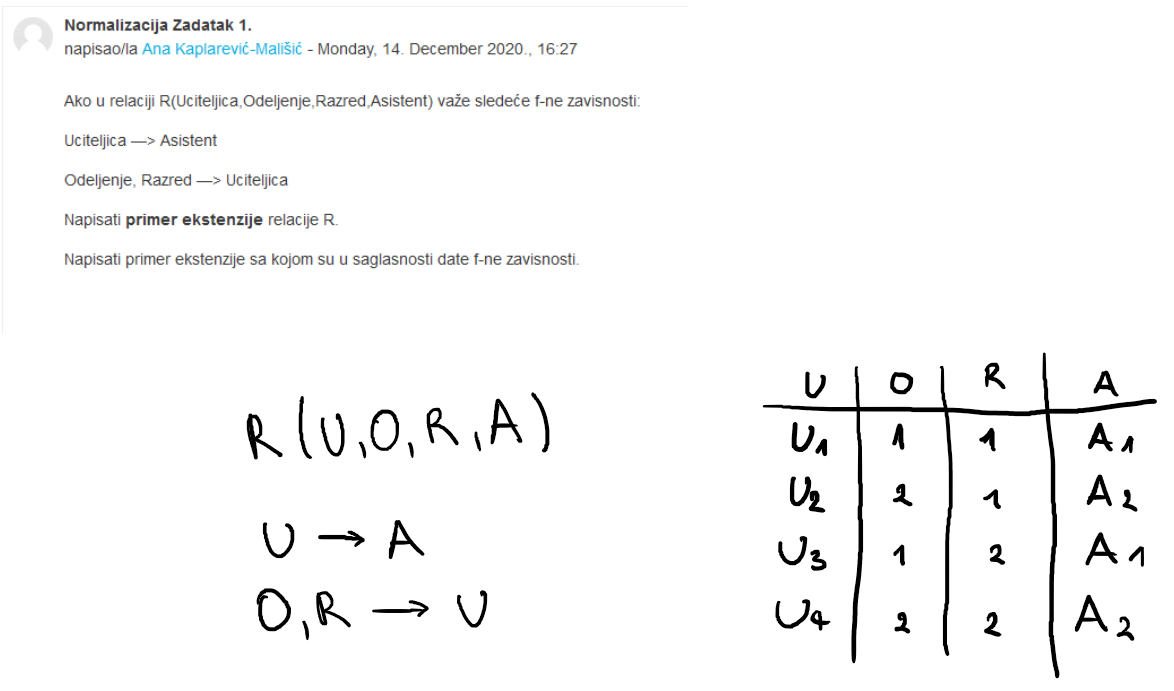 Normalizacija Zadatak 1.
napisao/la Ana Kaplarević-Mališić - Monday, 14. December 2020., 16:27
Ako u relaciji R(Uciteljica,Odeljenje,Razred,Asistent) važe sledeće f-ne zavisnosti:
Uciteljica —> Asistent
Odeljenje, Razred —> Uciteljica
Napisati primer ekstenzije relacije R.
Napisati primer ekstenzije sa kojom su u saglasnosti date f-ne zavisnosti.
R(U,O,R,A)
U → A
O,R → U
U O R A
U1 1 1 A1
U2 2 1 A2
U3 1 2 A1
U4 2 2 A2